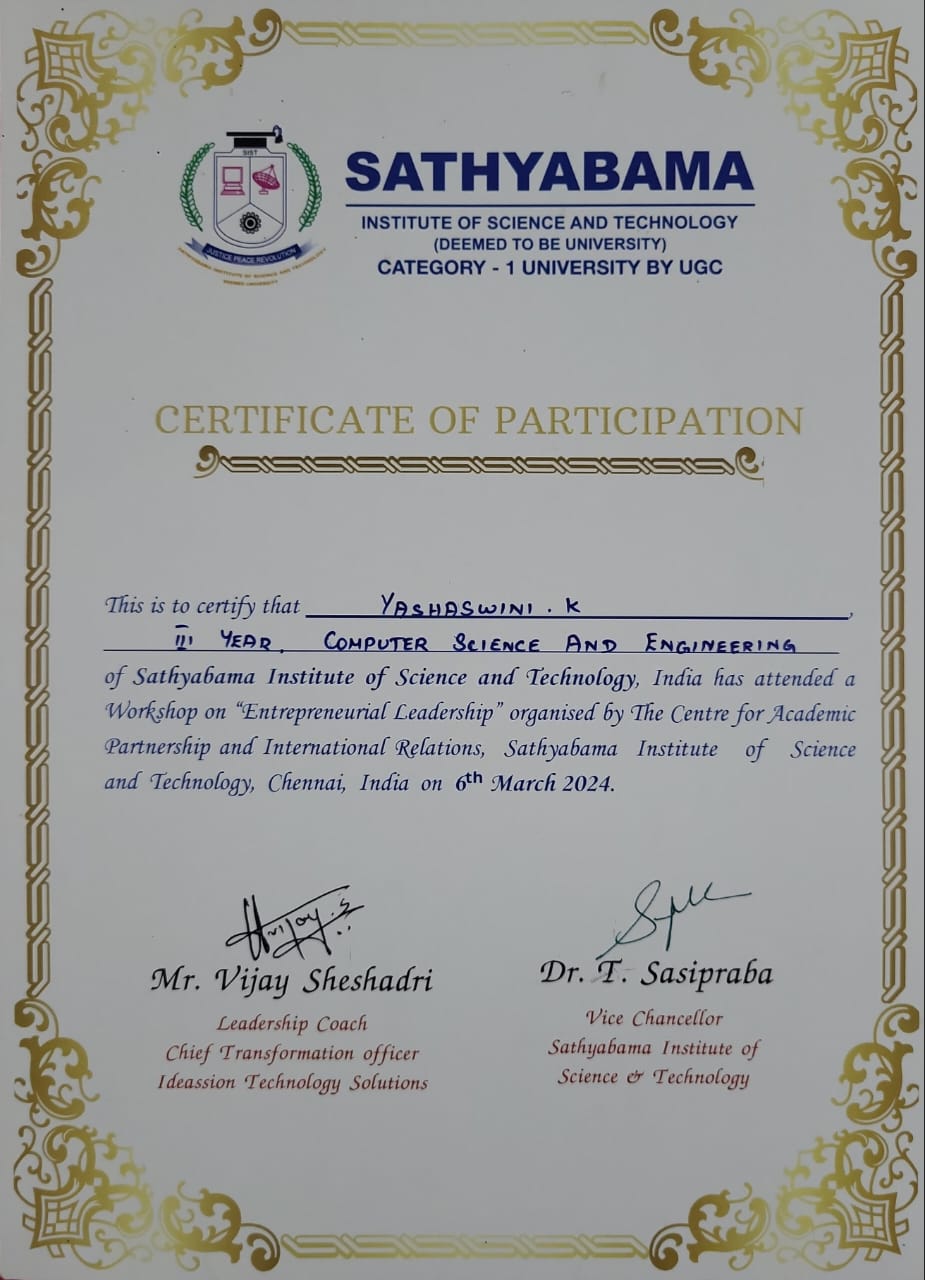 SIST
JUSTICE PEACE REVOLUTION
SATHYABAMA INSTITUTE OF SCIENCE AND TECHNOLOGY
DEEMED UNIVERSITY
SATHYABAMA
INSTITUTE OF SCIENCE AND TECHNOLOGY
(DEEMED TO BE UNIVERSITY)
CATEGORY - 1 UNIVERSITY BY UGC
CERTIFICATE OF PARTICIPATION
This is to certify that YASHASWINI . K ,
III YEAR. COMPUTER SCIENCE AND ENGINEERING
of Sathyabama Institute of Science and Technology, India has attended a
Workshop on “Entrepreneurial Leadership” organised by The Centre for Academic
Partnership and International Relations, Sathyabama Institute of Science
and Technology, Chennai, India on 6th March 2024.
Vijay.S
Mr. Vijay Sheshadri
Leadership Coach
Chief Transformation officer
Ideassion Technology Solutions
Dr. T. Sasipraba
Vice Chancellor
Sathyabama Institute of
Science & Technology